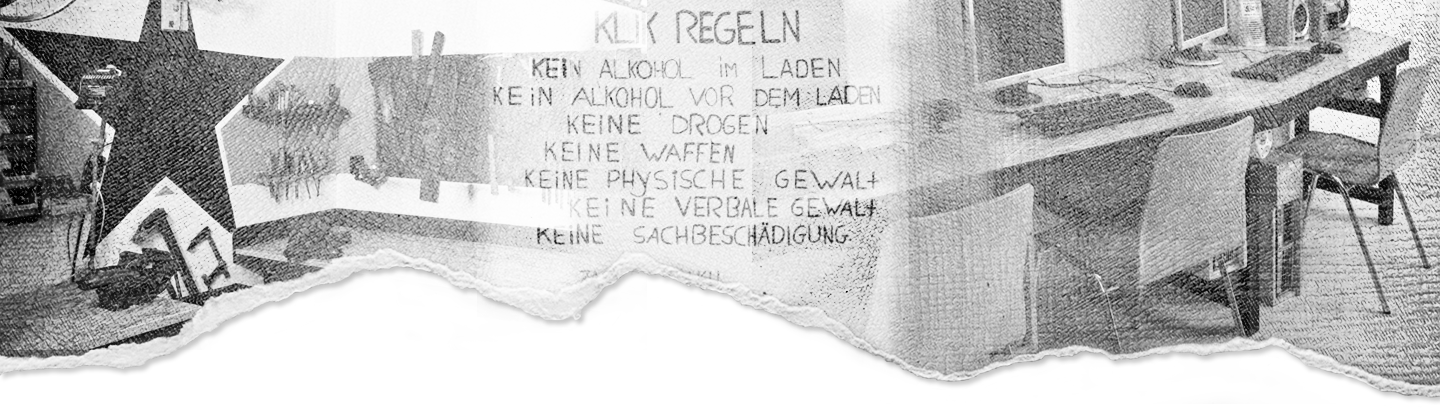 KLIK REGELN
KEIN ALKOHOL iM LADEN
KEiN ALKOHOL VOR DEM LADEN
KEINE DROGEN
KEINE WAFFEN
KEiNE PHYSiSCHE GEWALt
KEiNE VERBALE GEWALt
KEINE SACHBESCHÄDIGUNG